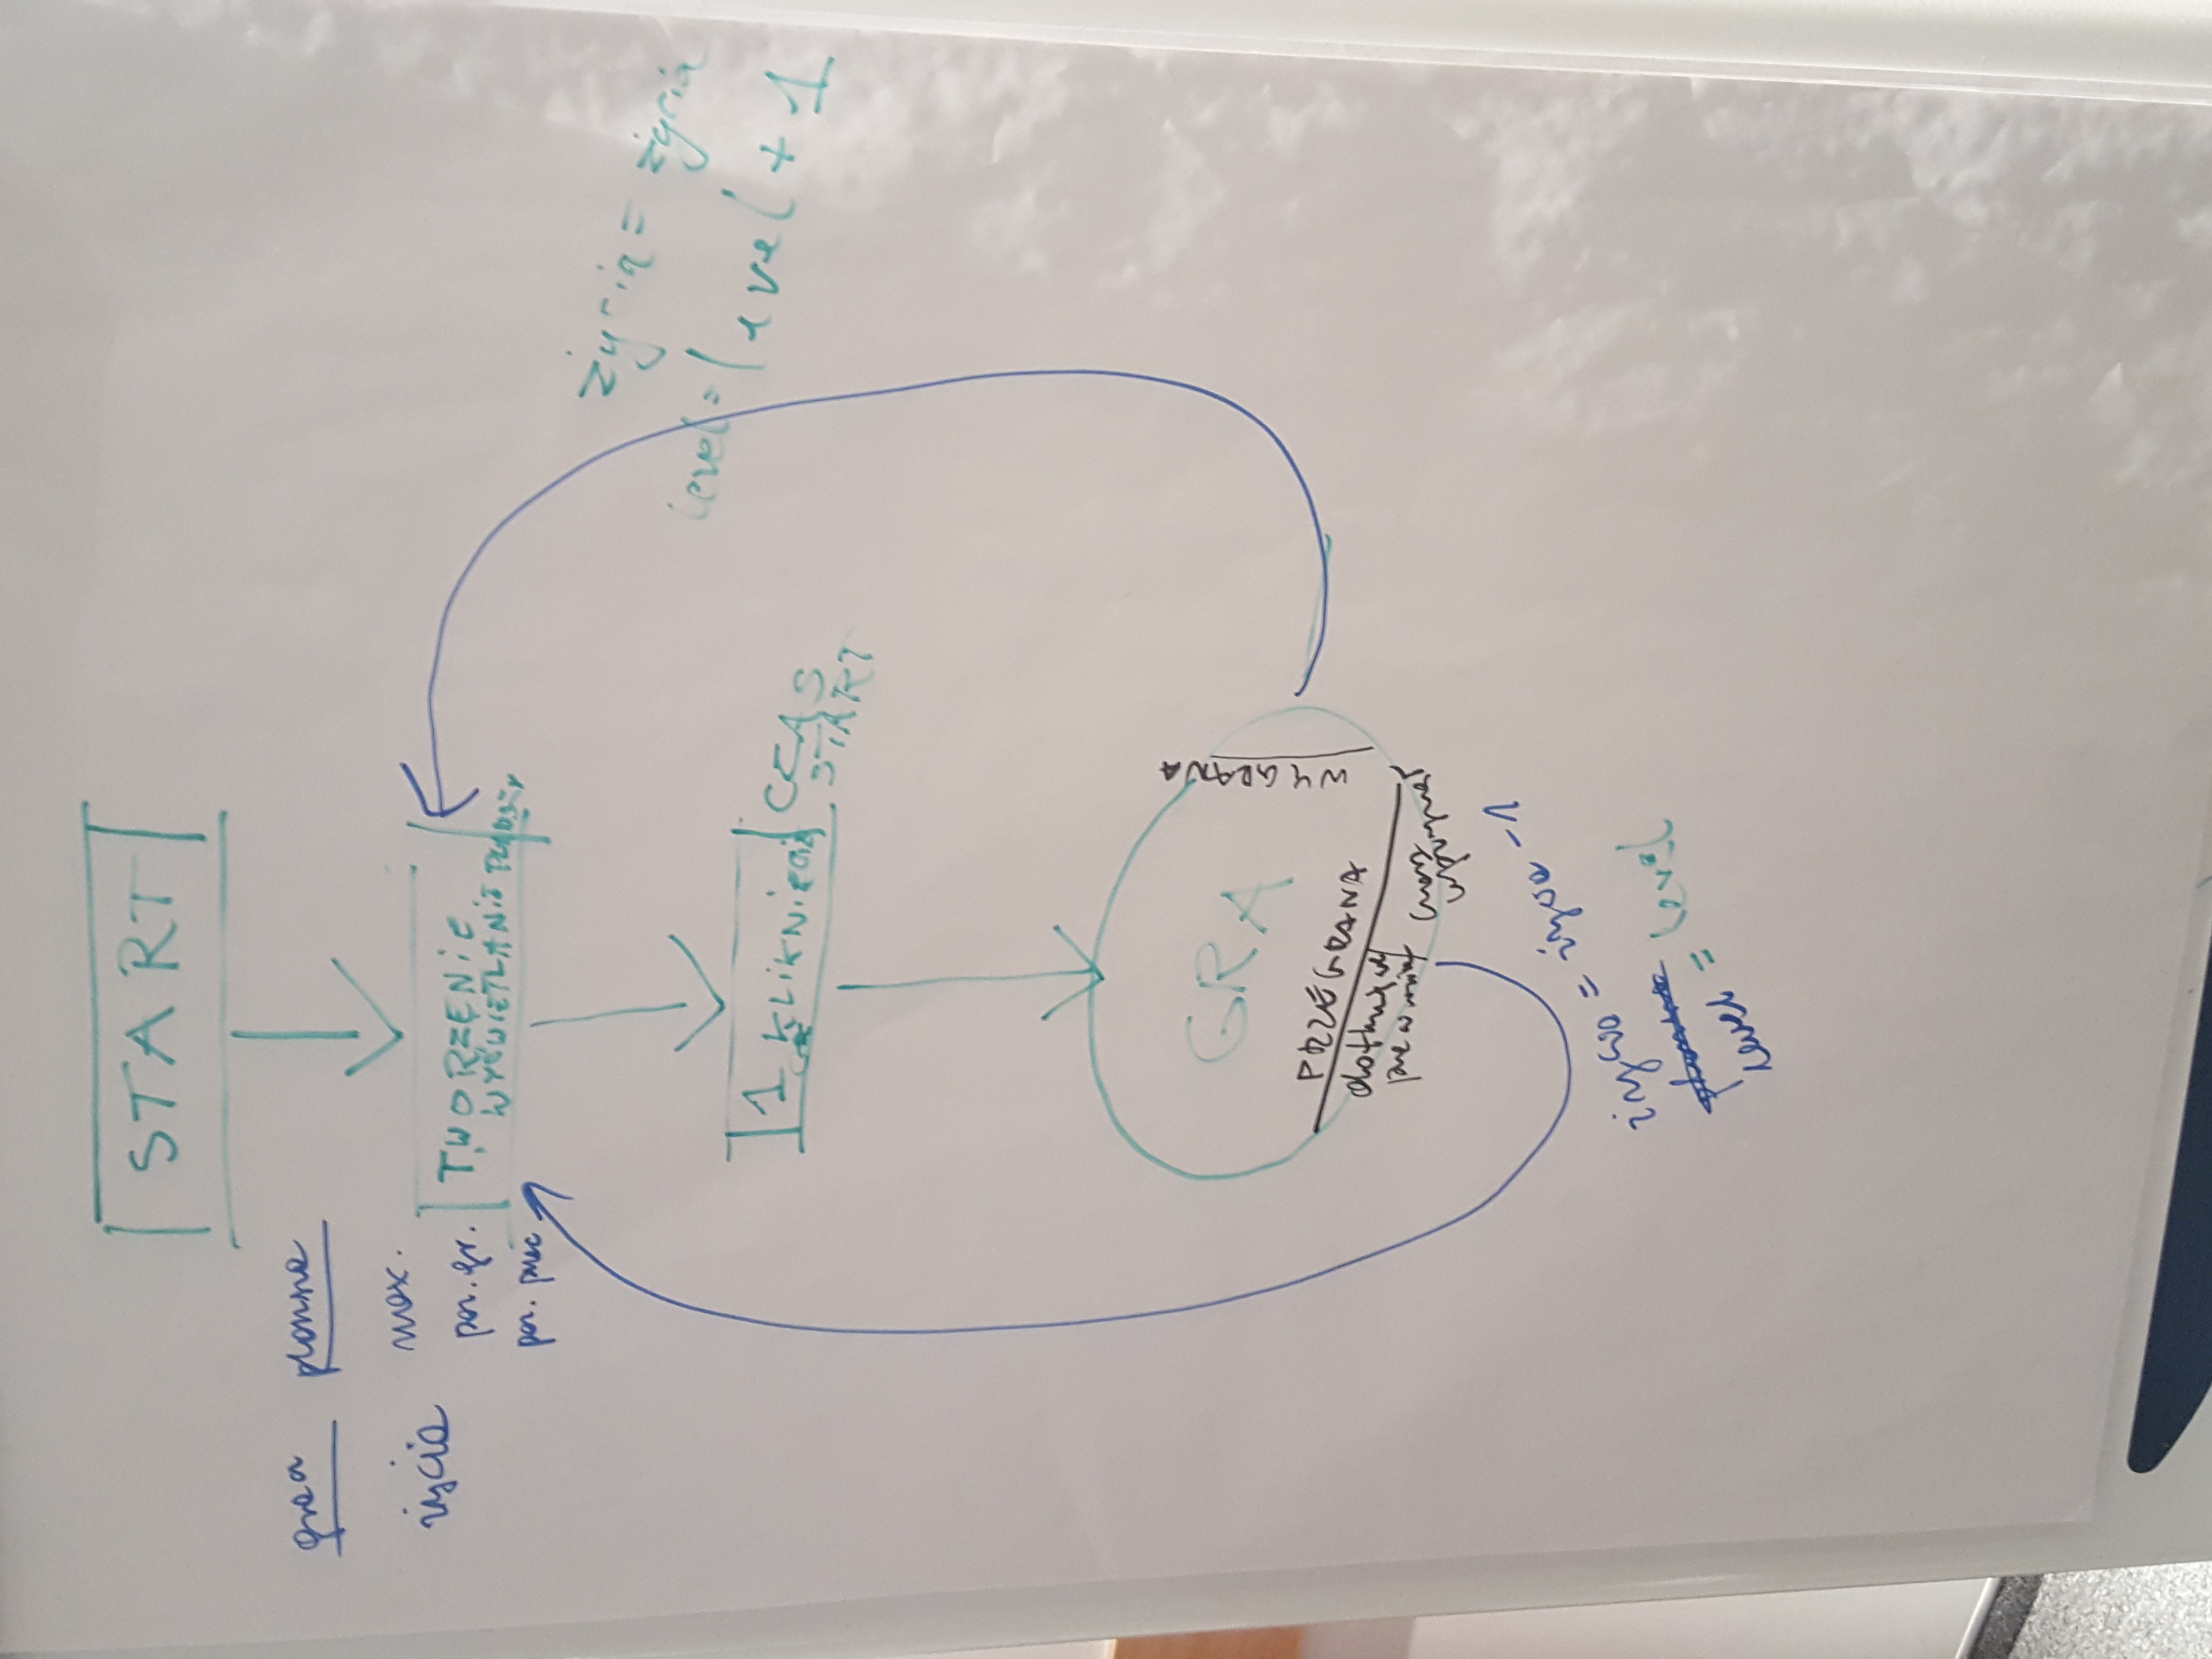 START
gra plansza
życia max.
poz. gr.
poz. prze
TWORZENIE
WYŚWIETLANIE PLANSZY
życia = życia
level = level + 1
1 KLIKNIĘCIE CZAS
START
GRA
WYGRANA
PRZEGRANA
dotknięcie
czas
upłynął
życia = życia - 1
level = level